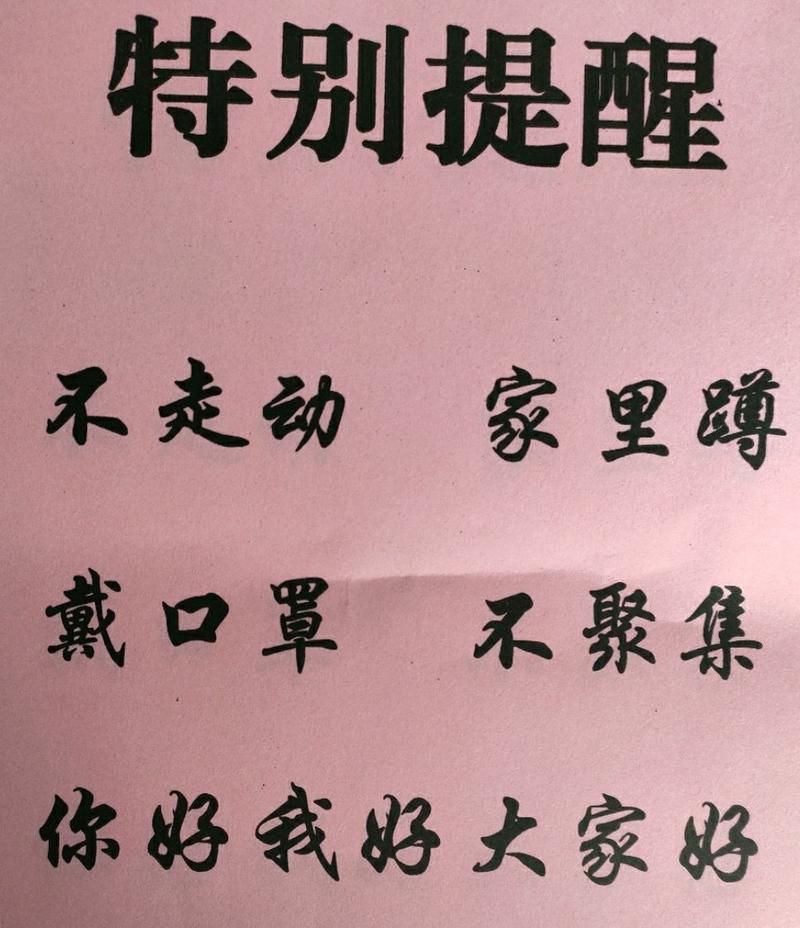 特别提醒
不走动 家里蹲
戴口罩 不聚集
你好我好大家好